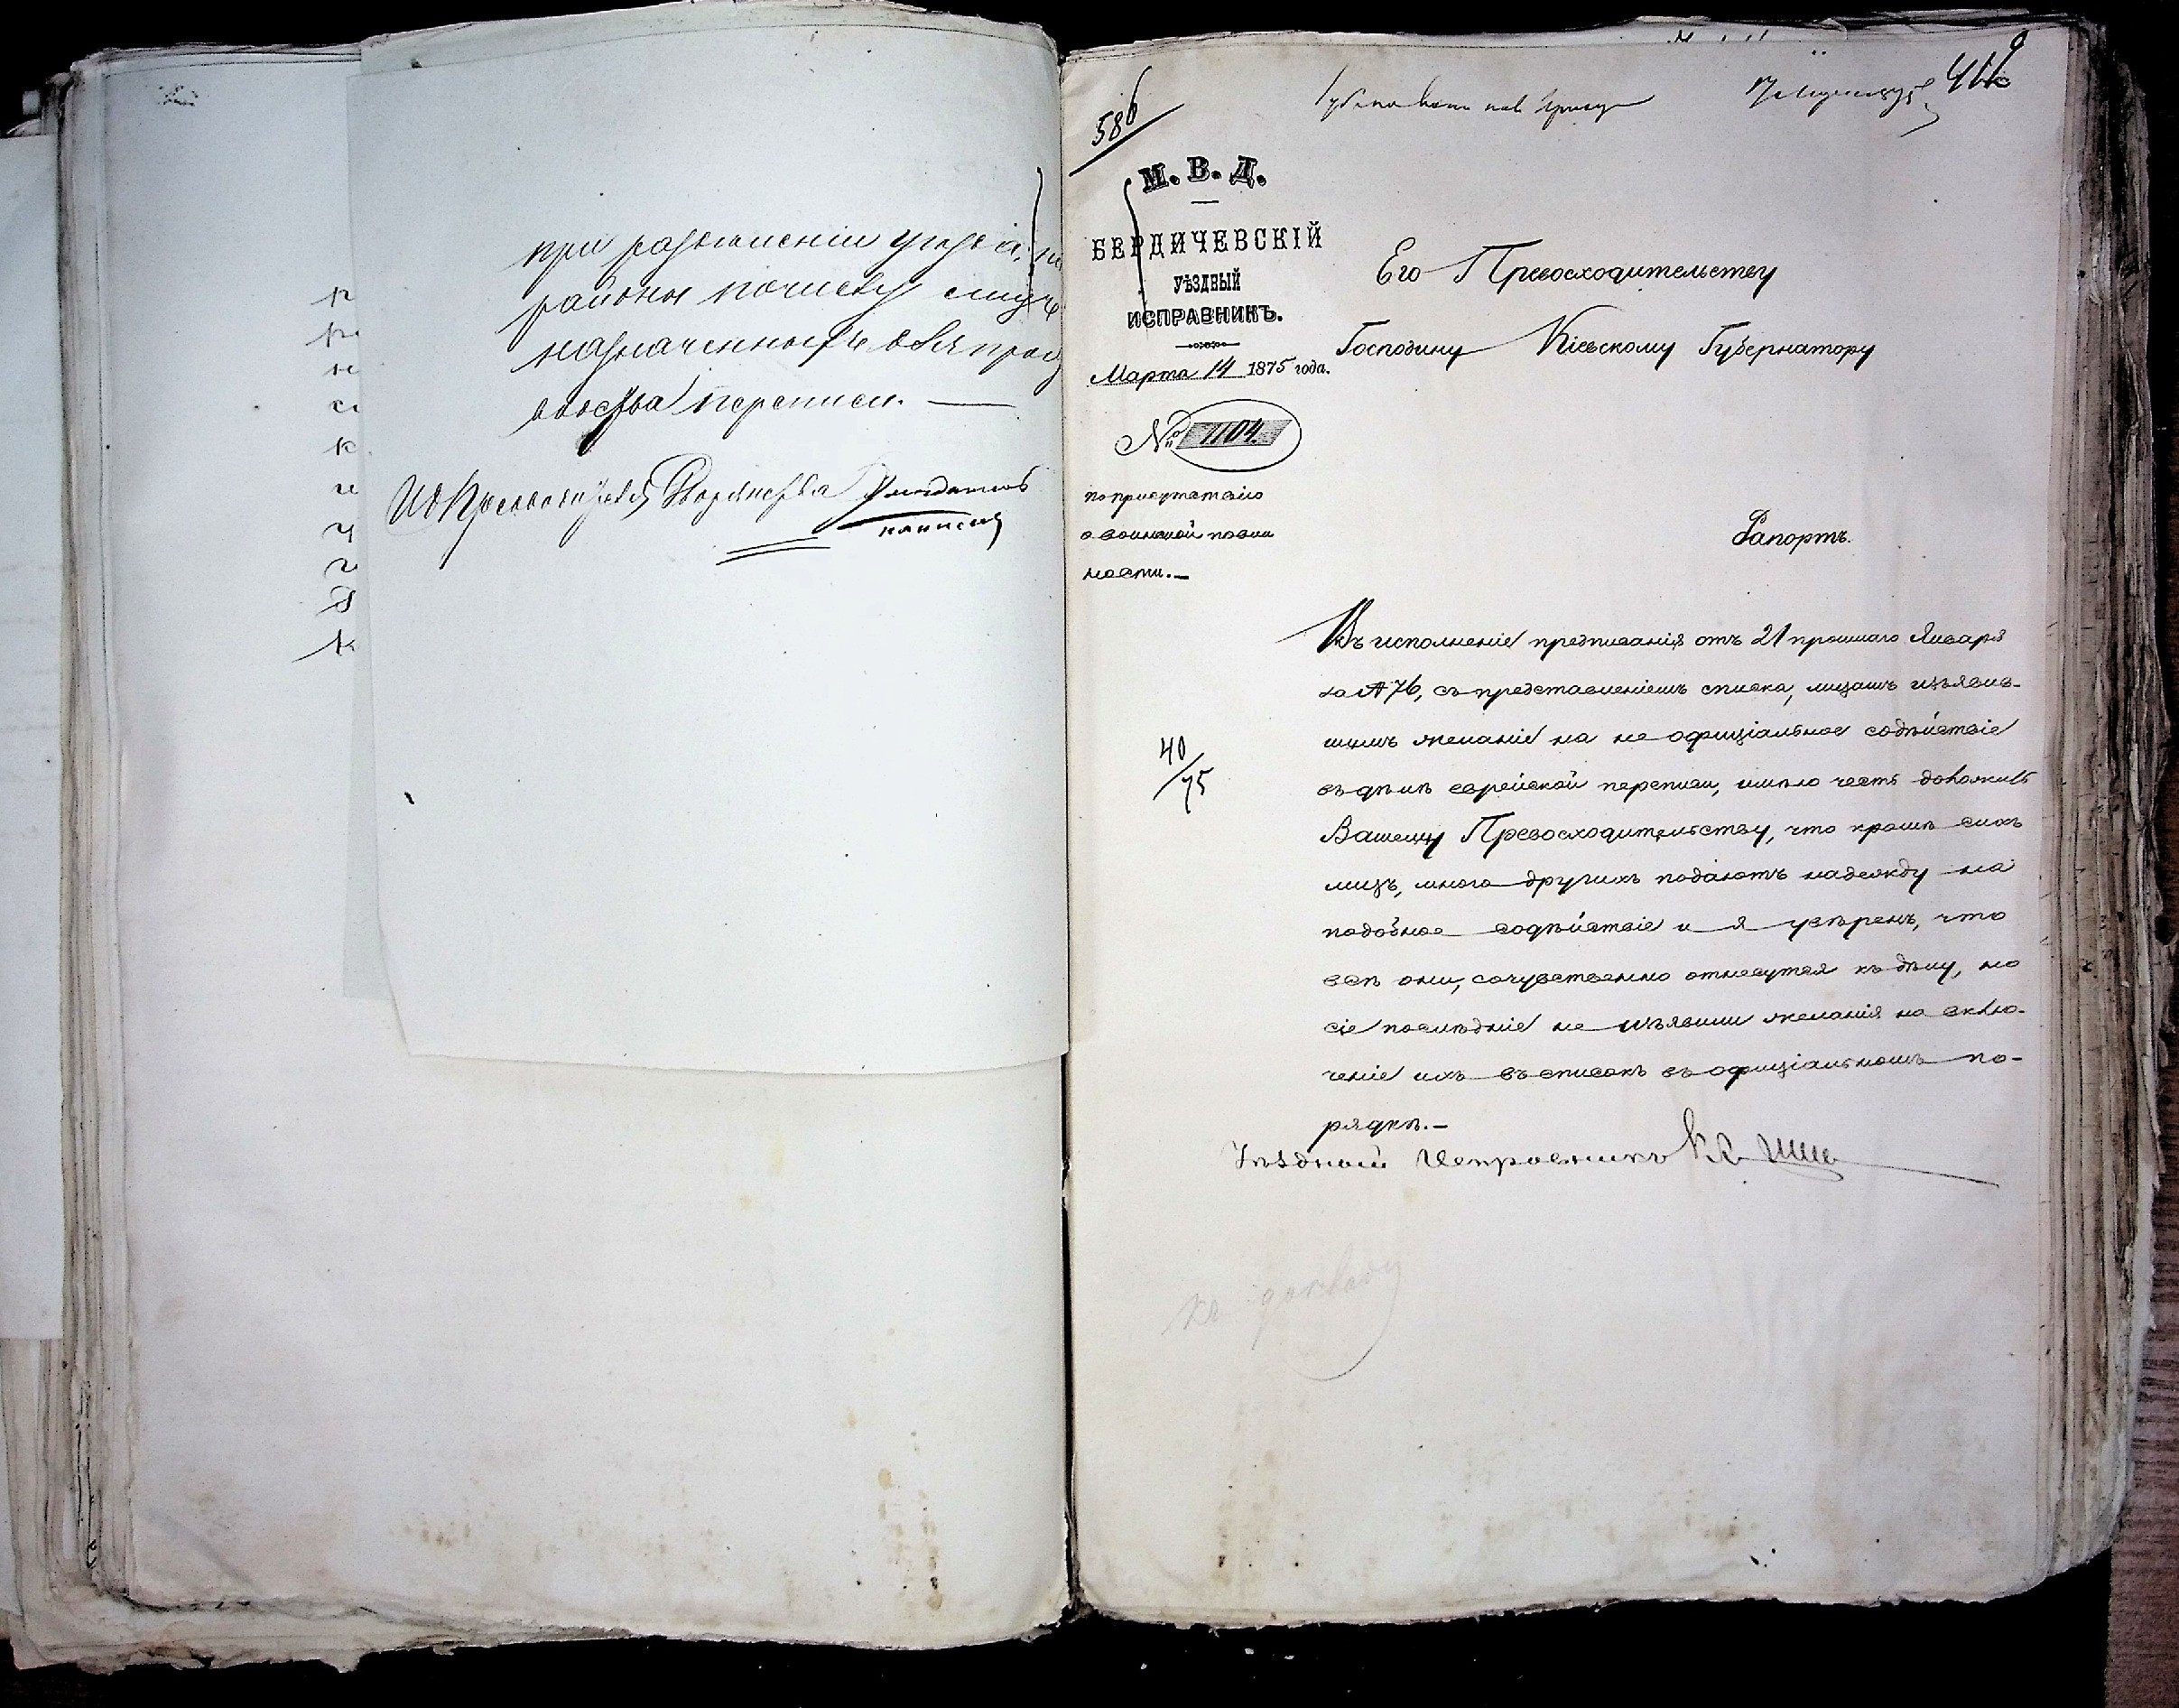 при разъясненіи
районы
назначенныхъ для произ
водства переписи. —
Предводитель Дворянства
586
М. В. Д.
БЕРДИЧЕВСКІЙ
УѢЗДНЫЙ
ИСПРАВНИКЪ.
Марта 14 1875 года.
№ 1104.
по присутствію
о воинской повин
ности.—
40/75
Его Превосходительству
Господину Кіевскому Губернатору
Рапортъ.
Въ исполненіе предписанія отъ 21 прошлаго Января
за № 76, съ представленіемъ списка, лицамъ изъявив-
шимъ желаніе на не официіальное содѣйствіе
въ дѣлѣ еврейской переписи, имѣю честь доложить
Вашему Превосходительству, что кромѣ сихъ
лицъ, много другихъ подаютъ надежду на
подобное содѣйствіе и я увѣренъ, что
всѣ они, сочувственно отнесутся къ дѣлу, но
сіе послѣдніе не изъявили желанія на вклю-
ченіе ихъ въ списокъ въ официіальномъ по-
рядкѣ.—
Уѣздный Исправникъ
къ докладу